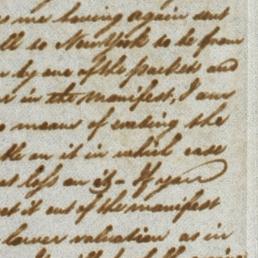 me having again sent
to New York to be from
by one of the packets and
in the manifest, I am
means of ... the
on it in which case
less on it - If you
it out of the manifest
lower valuation as in